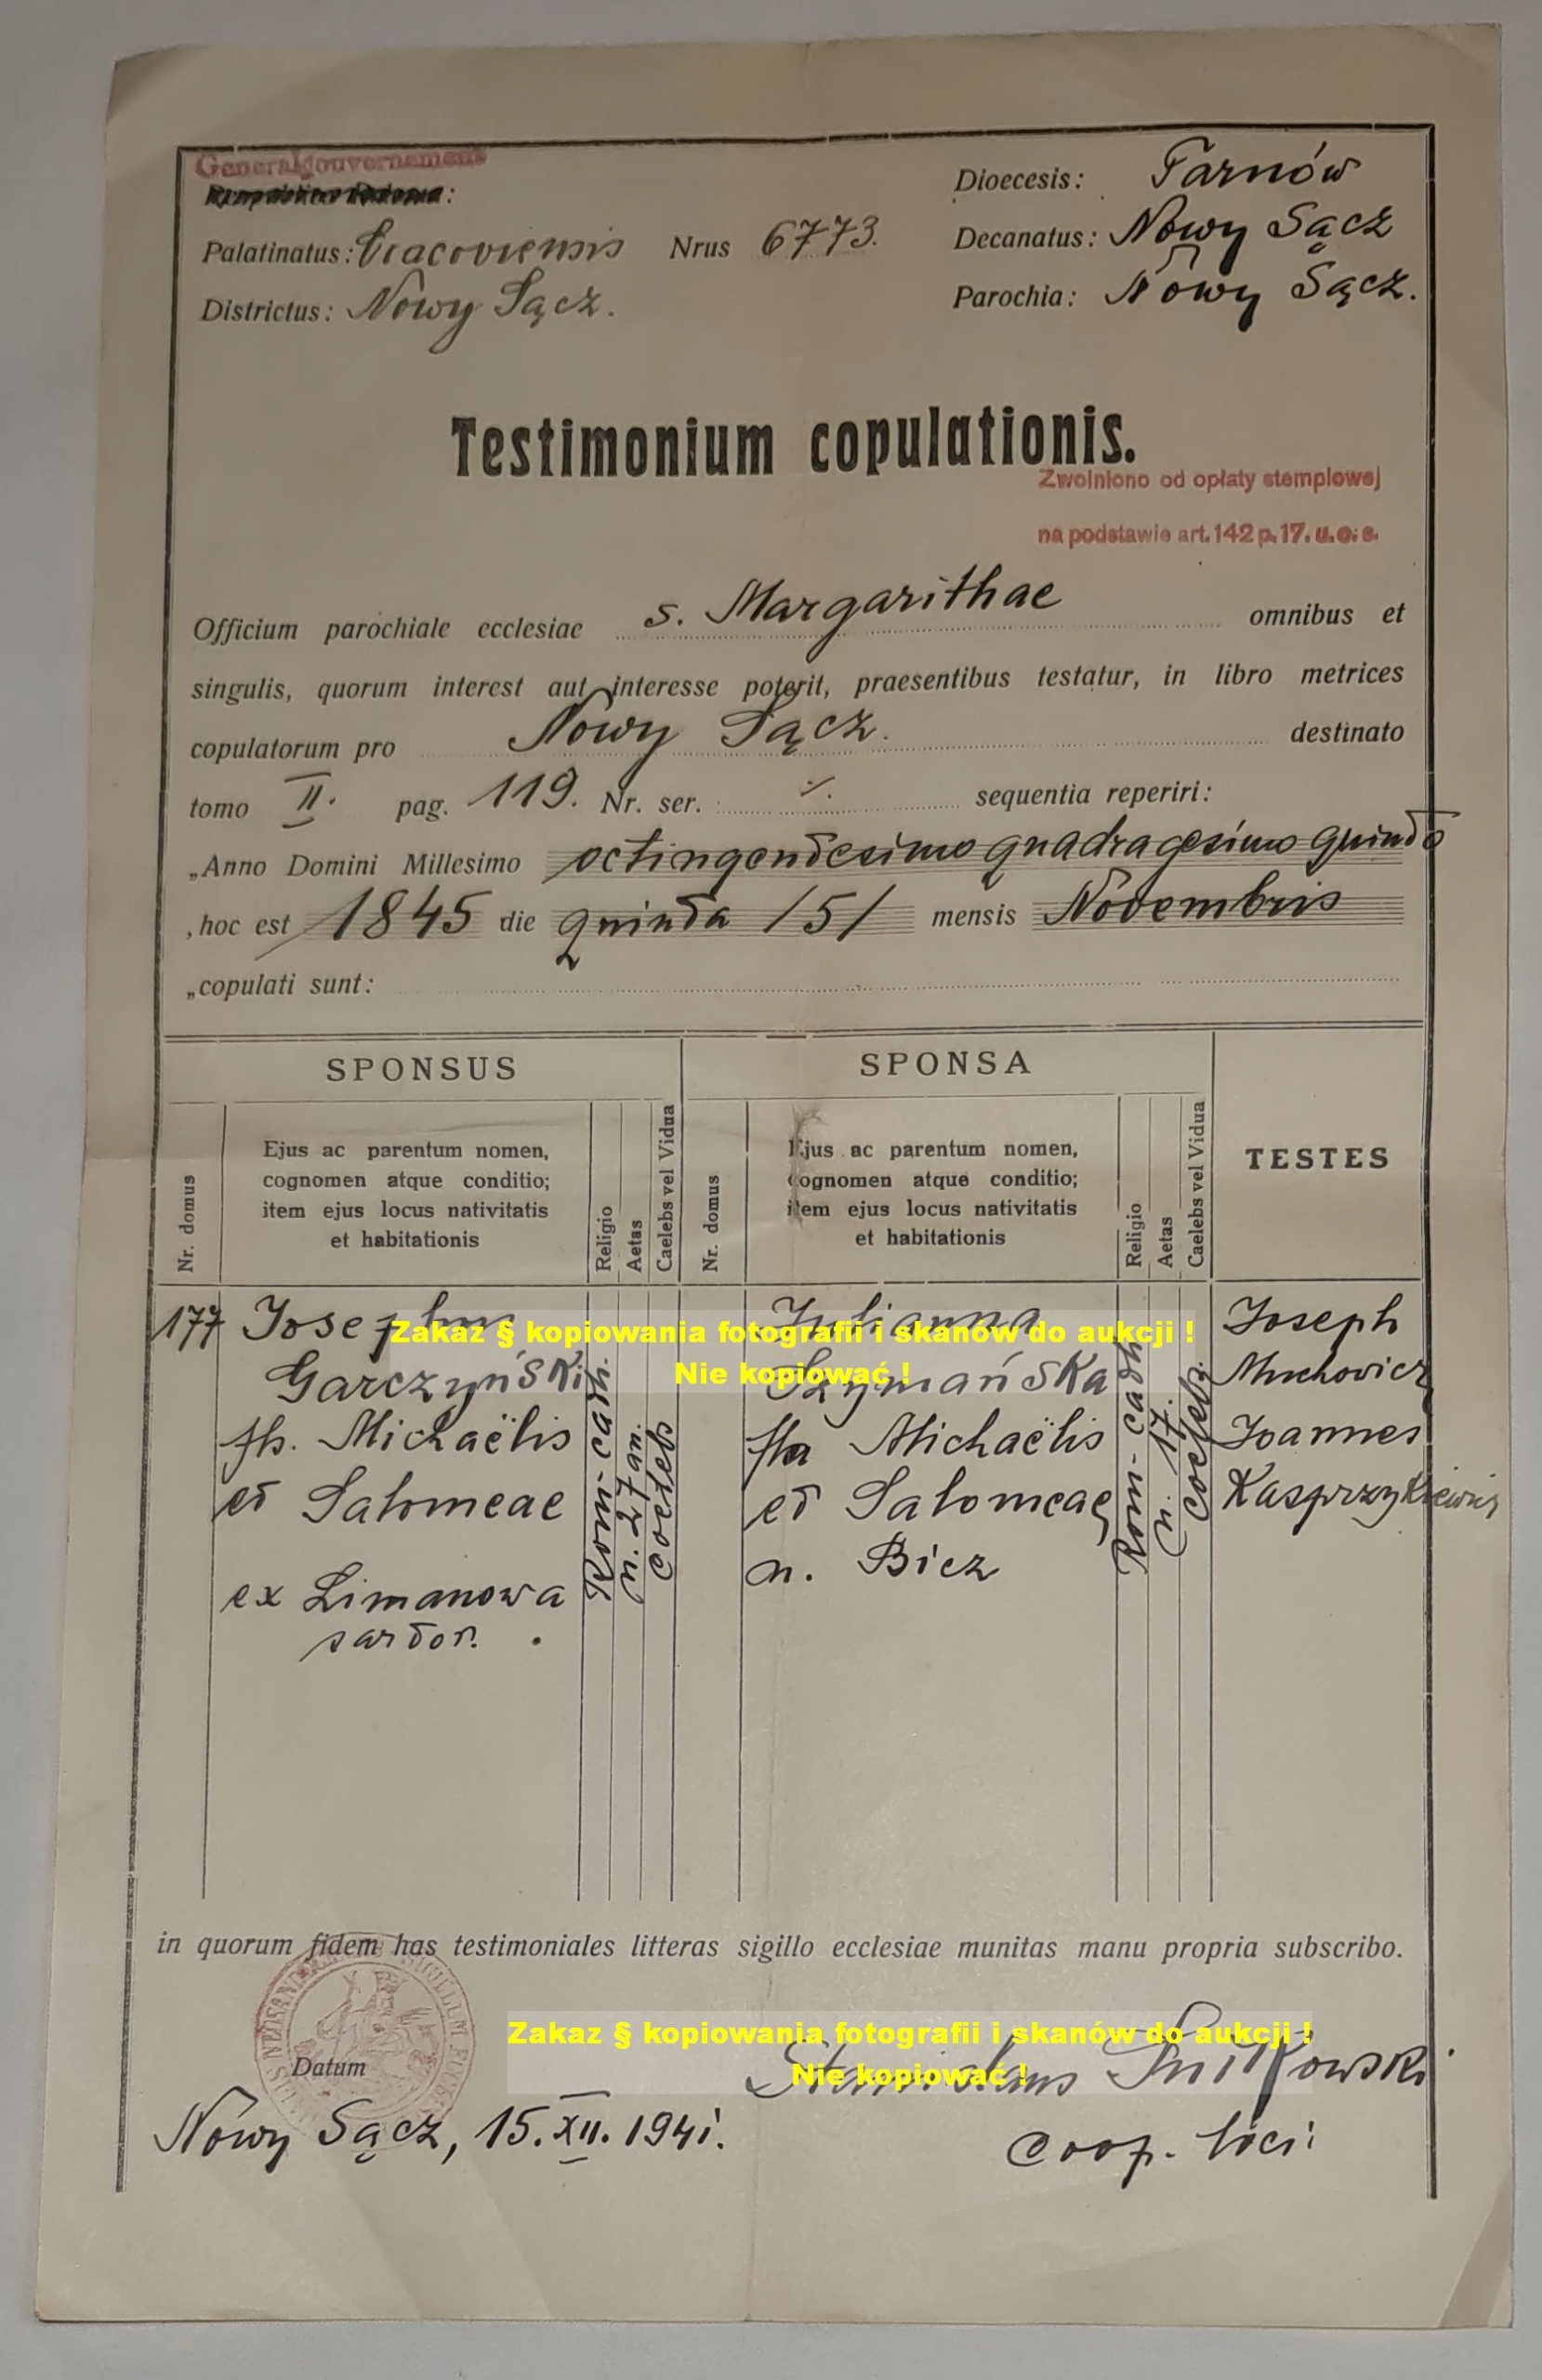 Generalgouvernement
Palatinatus: Cracoviensis Nrus 6773.
Districtus: Nowy Sącz.
Dioecesis: Tarnów
Decanatus: Nowy Sącz
Parochia: Nowy Sącz.
Testimonium copulationis.
Zwolniono od opłaty stemplowej
na podstawie art. 142 p. 17. u. o. s.
Officium parochiale ecclesiae s. Margarithae omnibus et
singulis, quorum interest aut interesse poterit, praesentibus testatur, in libro metrices
copulatorum pro Nowy Sącz. destinato
tomo II. pag. 119. Nr. ser. sequentia reperiri:
„Anno Domini Millesimo octingentesimo quadragesimo quinto
„hoc est 1845 die quinta /5/ mensis Novembris
„copulati sunt:
SPONSUS
Nr. domus
Ejus ac parentum nomen,
cognomen atque conditio;
item ejus locus nativitatis
et habitationis
Religio
Aetas
Caelebs vel Vidua
SPONSA
Nr. domus
Ejus ac parentum nomen,
cognomen atque conditio;
item ejus locus nativitatis
et habitationis
Religio
Aetas
Caelebs vel Vidua
TESTES
177 Josephus
Garczyński
fls. Michaëlis
et Salomeae
ex Limanowa
sartor.
Rom-cath.
n. 27 an.
coelebs
Julianna
Szymańska
fla Michaëlis
et Salomeae
n. Bicz
Rom-cath
n. 17.
coelebs.
Joseph
Muchowicz
Joannes
Kasprzykiewicz
Zakaz § kopiowania fotografii i skanów do aukcji !
Nie kopiować !
in quorum fidem has testimoniales litteras sigillo ecclesiae munitas manu propria subscribo.
SIGILLUM
Datum
Zakaz § kopiowania fotografii i skanów do aukcji !
Nie kopiować !
Stanislaus
Nowy Sącz, 15. XII. 1941.
coop. loci